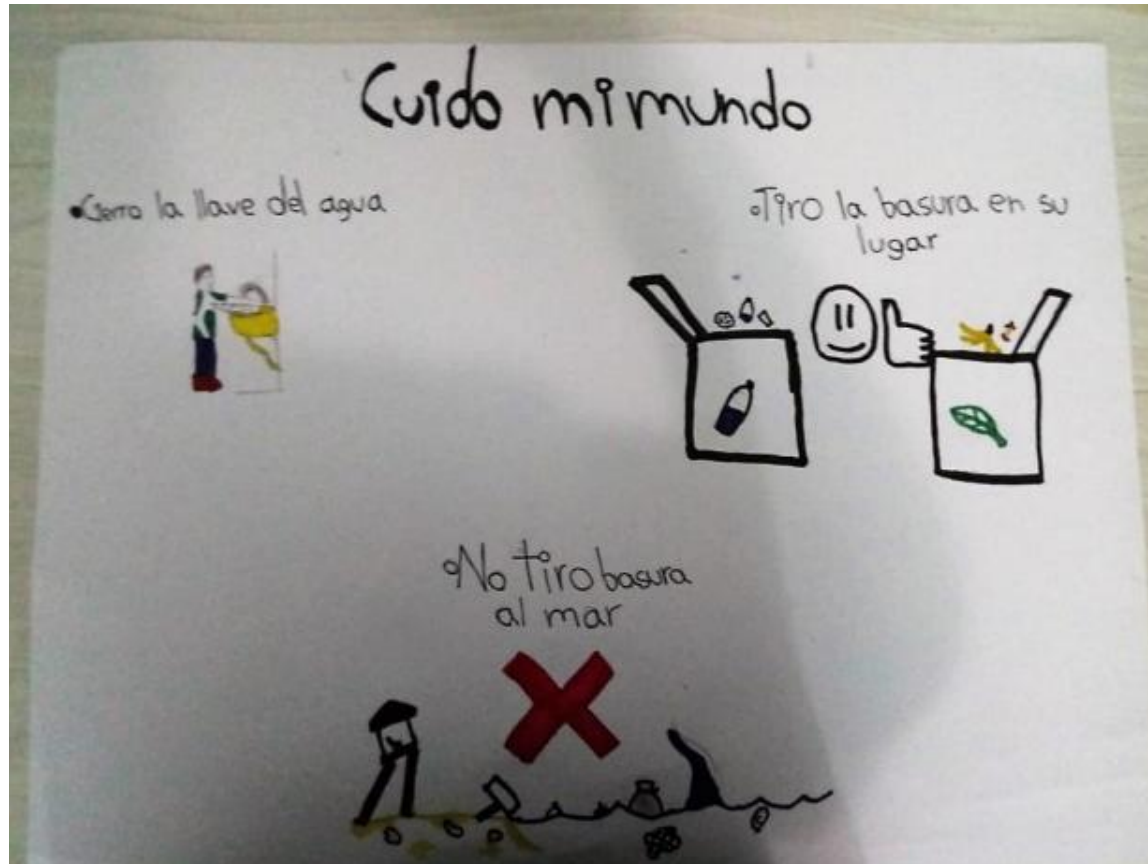 Cuido mi mundo
•Cierro la llave del agua
•Tiro la basura en su
lugar
•No tiro basura
al mar